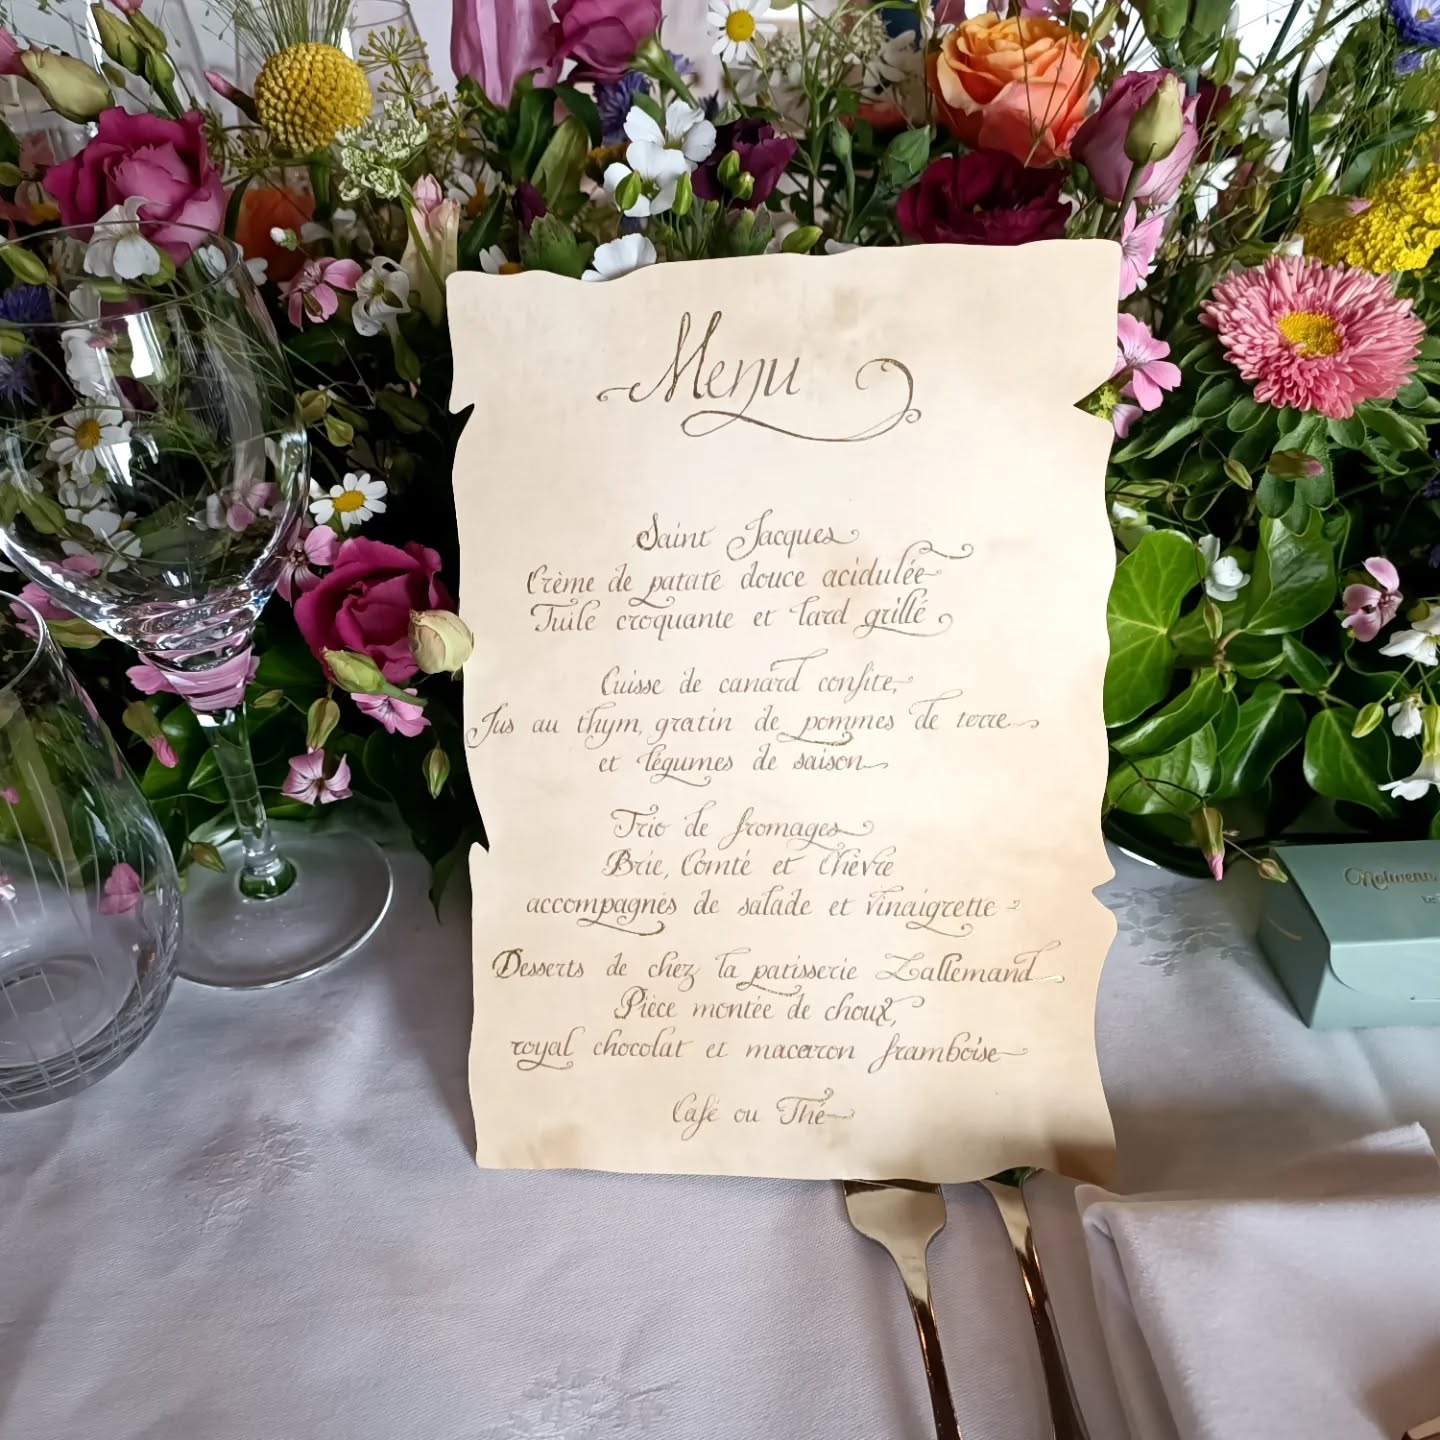 Menu
Saint Jacques
Crème de patate douce acidulée
Tuile croquante et lard grillé
Cuisse de canard confite,
Jus au thym, gratin de pommes de terre
et légumes de saison
Trio de fromages
Brie, Comté et Chèvre
accompagnés de salade et vinaigrette
Desserts de chez la patisserie Lallemand
Pièce montée de choux,
royal chocolat et macaron framboise
Café ou Thé